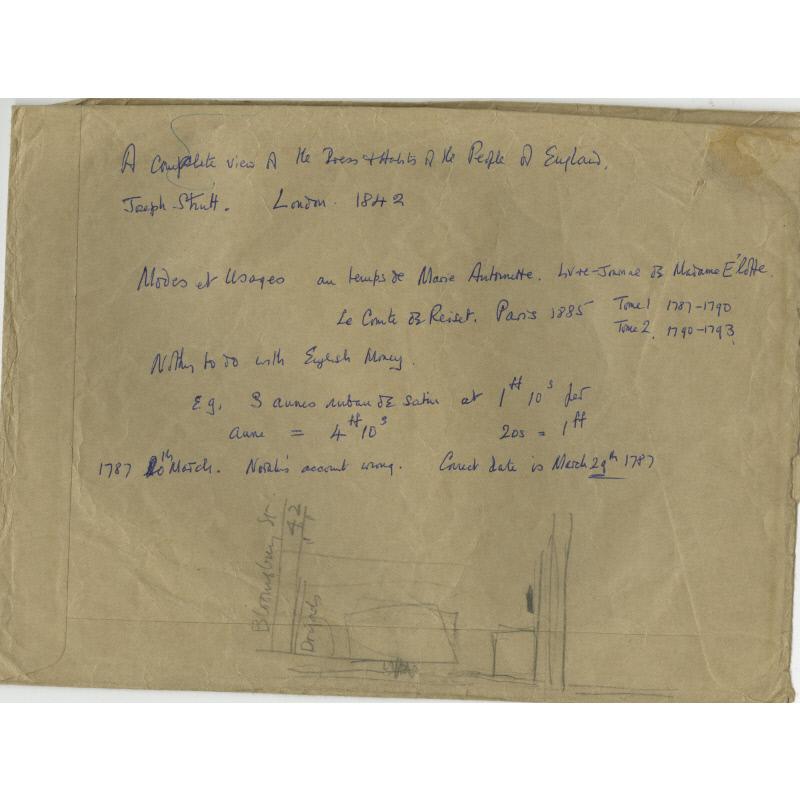 A complete view of the Dress & Habits of the People of England.
Joseph Strutt. London. 1842
Modes et Usages au temps de Marie Antoinette. Livre-Journal de Madame Élotte.
Le Comte de Reiset. Paris 1885 Tome 1 1787-1790
Tome 2. 1790-1793
Nothing to do with English Money.
E.g. 3 aunes ruban de satin at 1tt 10s per
aune = 4tt 10s 20s = 1tt
1787 20th March. Norah's account wrong. Correct date is March 29th 1787
Bloomsbury St.
42